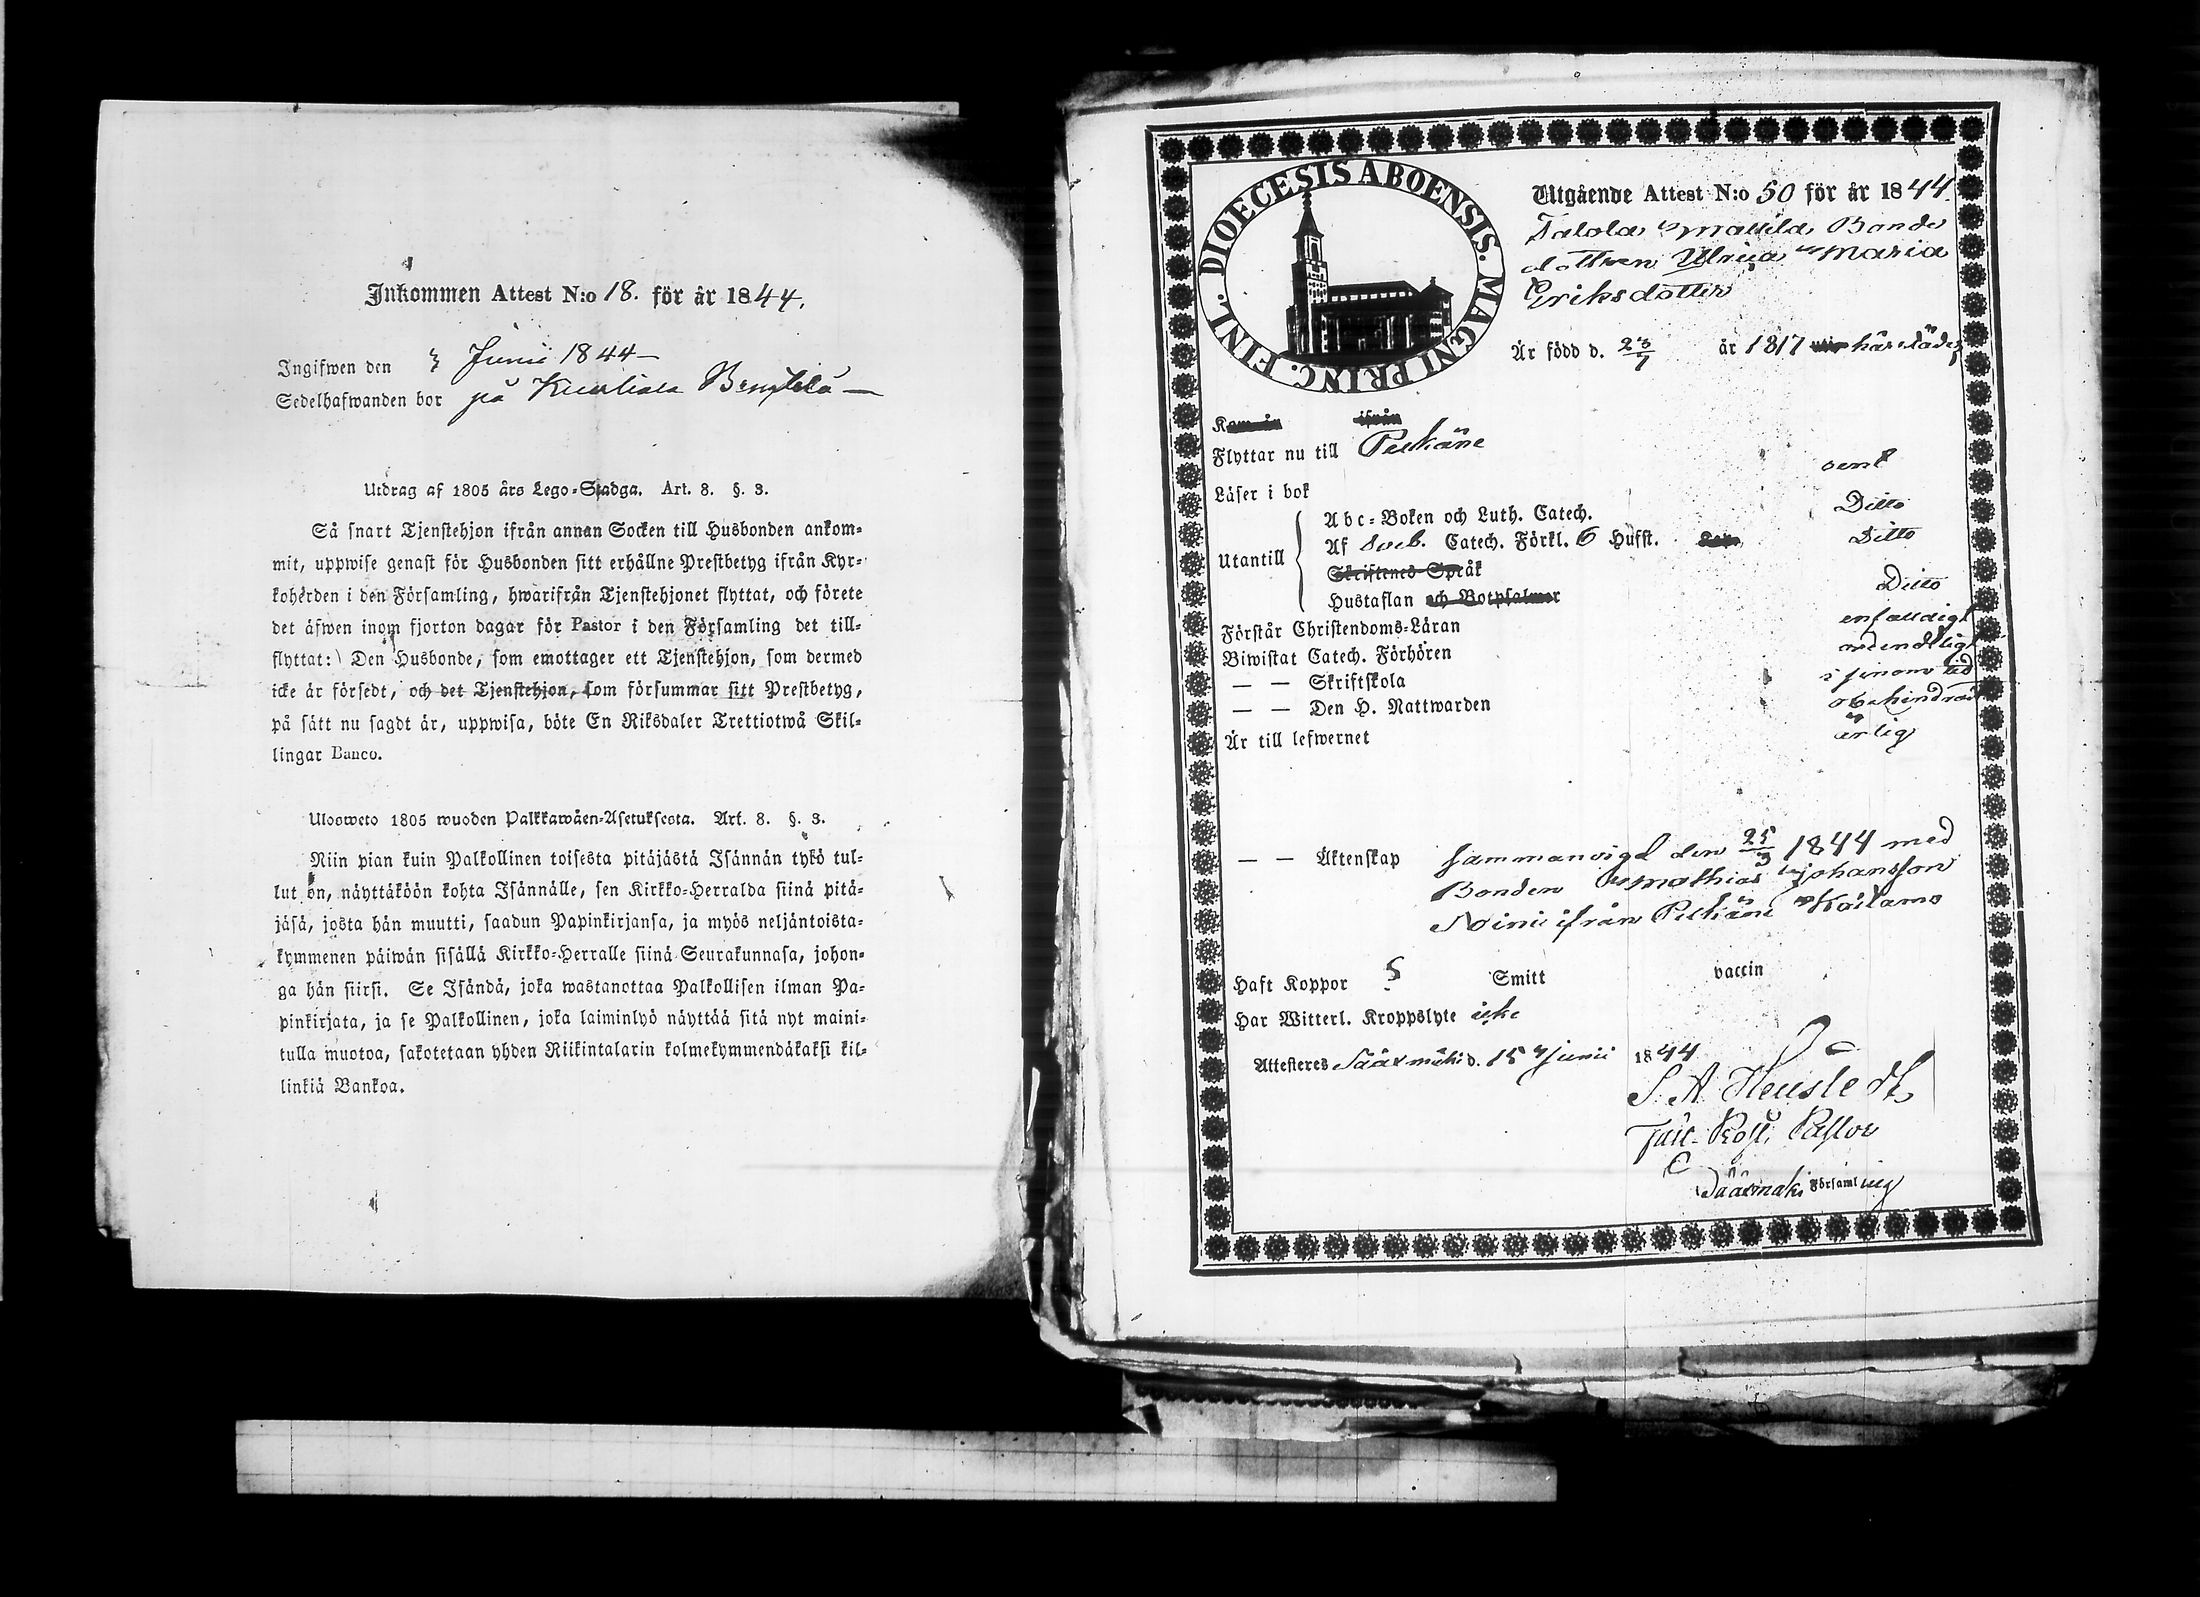 Inkommen Attest N:o 18. för år 1844.
Ingifwen den Junii 1844 —
Sedelhafwanden bor på —
Utdrag af 1805 års Lego-Stadga. Art. 8. §. 3.
Så snart Tjenstehjon ifrån annan Socken till Husbonden ankom-
mit, uppwise genast för Husbonden sitt erhållne Prestbetyg ifrån Kyr-
koherden i den Församling, hwarifrån Tjenstehjonet flyttat, och förete
det äfwen inom fjorton dagar för Pastor i den Församling det till-
flyttat: Den Husbonde, som emottager ett Tjenstehjon, som dermed
icke är försedt, och det Tjenstehjon, som försummar sitt Prestbetyg,
på sätt nu sagdt är, uppwisa, böte En Riksdaler Trettiotwå Skil-
lingar Banco.
Ulosweto 1805 wuoden Palkkawäen-Asetuksesta. Art. 8. §. 3.
Niin pian kuin Palkollinen toisesta pitäjästä Isännän tykö tul-
lut on, näyttäköön kohta Isännälle, sen Kirkko-Herralda siinä pitä-
jäsä, josta hän muutti, saadun Papinkirjansa, ja myös neljäntoista-
kymmenen päiwän sisällä Kirkko-Herralle siinä Seurakunnasa, johon-
ga hän siirsi. Se Isändä, joka wastanottaa Palkollisen ilman Pa-
pinkirjata, ja se Palkollinen, joka laiminlyö näyttää sitä nyt maini-
tulla muotoa, sakotetaan yhden Riikintalarin kolmekymmendäkaksi kil-
linkiä Bankoa.
DIOECESIS ABOENSIS. MAGNI PRINC. FINL.
Utgående Attest N:o 50 för år 1844.
Bonde
dottren Ulrica Maria
Eriksdotter
Är född d. år 1817 härstädes
Flyttar nu till Pelkäne
Läser i bok rent
Utantill
Abc-Boken och Luth. Catech. Ditto
Af Sveb. Catech. Förkl. 6 Hufst. Ditto
Skriftenes Språk
Hustaflan och Botpsalmer Ditto
Förstår Christendoms-Läran enfaldigt
Biwistat Catech. Förhören ordentligt
— — Skriftskola i sinom tid
— — Den H. Nattwarden obehindrad
Är till lefwernet ärlig
— — Äktenskap sammanvigd den 25/3 1844 med
Bonden Mathias Johansson
ifrån Pelkäne
Haft Koppor Smitt vaccin
Har Witterl. Kroppslyte icke
Attesteres Sääxmäki d. 15 Junii 1844
S. A.
Pastor
Sääxmäki Församling